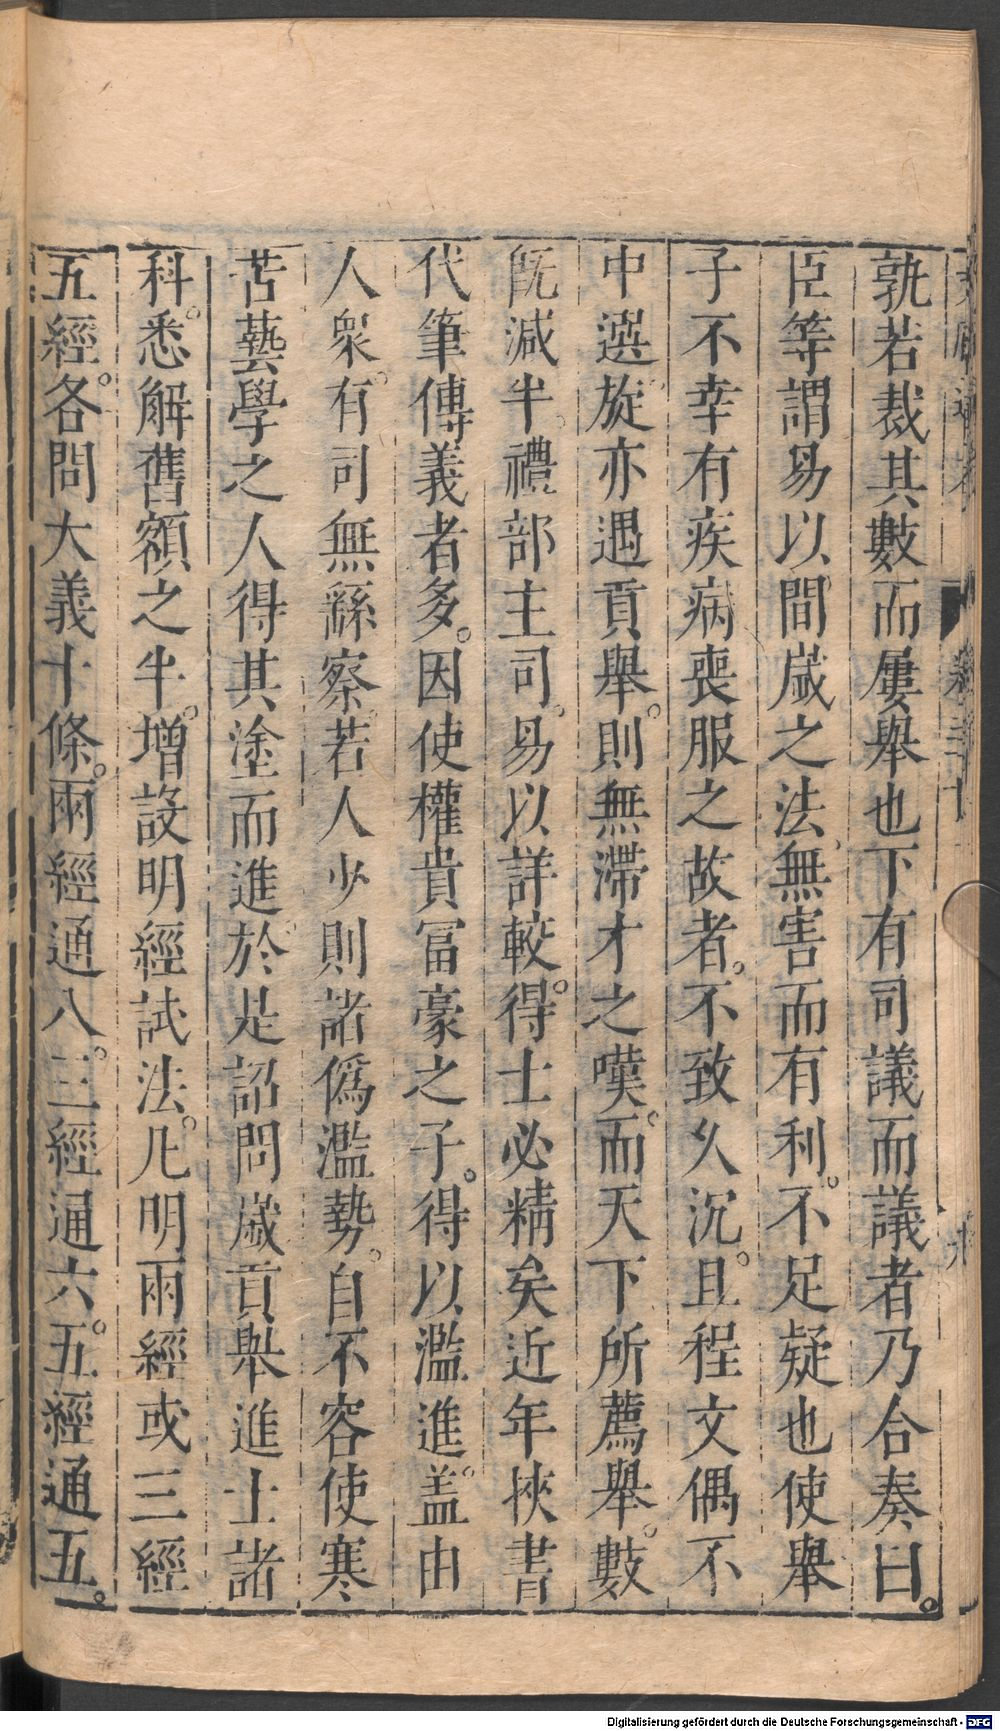 孰若裁其數而屢舉也下有司議而議者乃合奏曰。
臣等謂易以間歲之法無害而有利。不足疑也使舉
子不幸有疾病喪服之故者。不致久沉。且程文偶不
中選。旋亦遇貢舉。則無滯才之嘆。而天下所薦舉。數
旣減半。禮部主司。易以詳較。得士必精矣近年挾書
代筆傳義者多。因使權貴冨豪之子。得以濫進。盖由
人衆。有司無繇察。若人少則諸僞濫勢。自不容使寒
苦藝學之人得其塗而進於。是詔間歲貢舉進士諸
科。悉解舊額之半。增設明經試法。凡明兩經或三經
五經。各問大義十條。兩經通八。三經通六。五經通五。
Digitalisierung gefördert durch die Deutsche Forschungsgemeinschaft - DFG